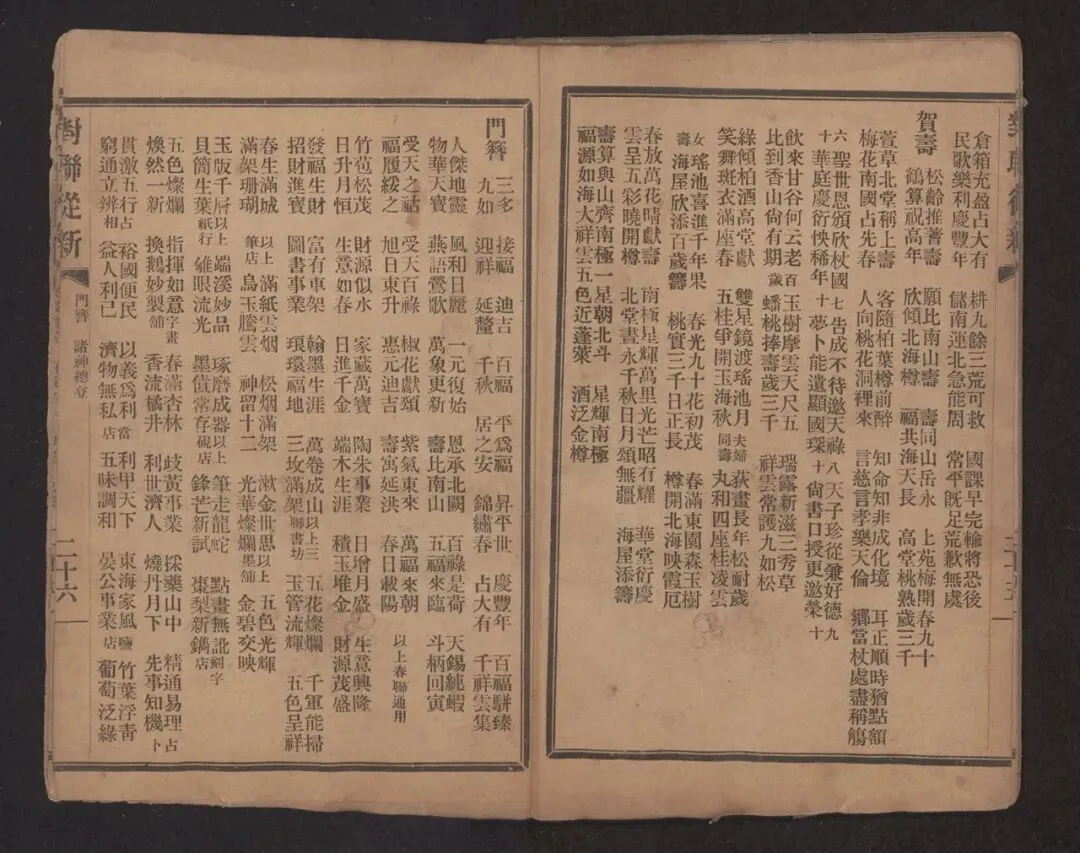 倉箱充盈占大有 耕九餘三荒可救 國課早完輸將恐後
民歌樂利慶豐年 儲南運北急能周 常平既足荒歉無虞
賀壽 松齡推耆壽 願比南山壽 壽同山岳永 上苑梅開春九十
鶴算祝高年 欣傾北海樽 福共海天長 高堂桃熟歲三千
萱草北堂稱上壽 客隨柏葉樽前醉 知命知非成化境 耳正順時猶點額
梅花南國占先春 人向桃花洞裡來 言慈言孝樂天倫 鄉當杖處盡稱觴
六十 聖世恩頒欣杖國 七十 告成不待邀天祿 八十 天子珍從兼好德 九十
華庭慶衍快稀年 夢卜能遺顯國琛 尙書口授更邀榮
飲來甘谷何云老 百歲 玉樹摩雲天尺五 瑞露新滋三秀草
比到香山尙有期 蟠桃捧壽歲三千 祥雲常護九如松
綠傾柏酒高堂獻 雙星鏡渡瑤池月 夫婦同壽 荻畫長年松耐歲
笑舞斑衣滿座春 五桂爭開玉海秋 丸和四座桂凌雲
女壽 瑤池喜進千年果 春光九十花初茂 春滿東園森玉樹
海屋欣添百歲籌 桃實三千日正長 樽開北海映霞卮
春放萬花晴獻壽 南極星輝萬里光芒昭有耀 華堂衍慶
雲呈五彩曉開樽 北堂晝永千秋日月頌無疆 海屋添籌
壽算與山齊南極一星朝北斗 星輝南極
福源如海大祥雲五色近蓬萊 酒泛金樽
門簪 三多 接福 迪吉 百福 平爲福 昇平世 慶豐年 百福駢臻
九如 迎祥 延釐 千秋 居之安 錦繡春 占大有 千祥雲集
人傑地靈 風和日麗 一元復始 恩承北闕 百祿是荷 天錫純嘏
物華天寶 燕語鶯歌 萬象更新 壽比南山 五福來臨 斗柄回寅
受天之祜 受天百祿 椒花獻頌 紫氣東來 萬福來朝 以上春聯通用
福履綏之 旭日東升 惠元迪吉 壽寓延洪 春日載陽
竹苞松茂 財源似水 家藏萬寶 陶朱事業 日增月盛 生意興隆
日升月恒 生意如春 日進千金 端木生涯 積玉堆金 財源茂盛
發福生財 富有車架 翰墨生涯 萬卷成山 以上三聯書坊 五花燦爛 千軍能掃
招財進寶 圖書事業 琅環福地 三坟滿架 玉管流輝 五色呈祥
春生滿城 以上筆店 滿紙雲烟 松烟滿架 漱金世思 以上墨舖 五色光輝
滿架珊瑚 鳥玉騰雲 神留十二 光華燦爛 金碧交映
玉版千層 以上紙行 端溪妙品 琢磨成器 以上硯店 筆走龍蛇 點畫無訛 刻字店
貝簡生葉 雒眼流光 墨債常存 鋒芒新試 棗梨新鐫
五色燦爛 指揮如意 字畫舖 春滿杏林 歧黃事業 採藥山中 精通易理 占卜
煥然一新 換鵝妙製 香流橘井 利世濟人 燒丹月下 先事知機
貫激五行 占相 裕國便民 以義爲利 當店 利甲天下 東海家風 鹽店 竹葉浮青
窮通立辨 益人利已 濟物無私 五味調和 晏公事業 葡萄泛綠
對聯從新 門簪 諸神總登 二十六